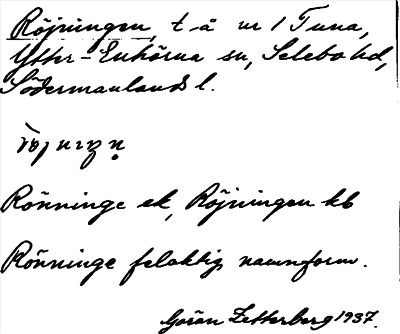 Röjningen, t å nr 1 Tuna,
Ytter-Enhörna sn, Selebo hd,
Södermanlands l.
Rönninge ek, Röjningen kb
Rönninge felaktig namnform.
Göran Zetterberg 1937.